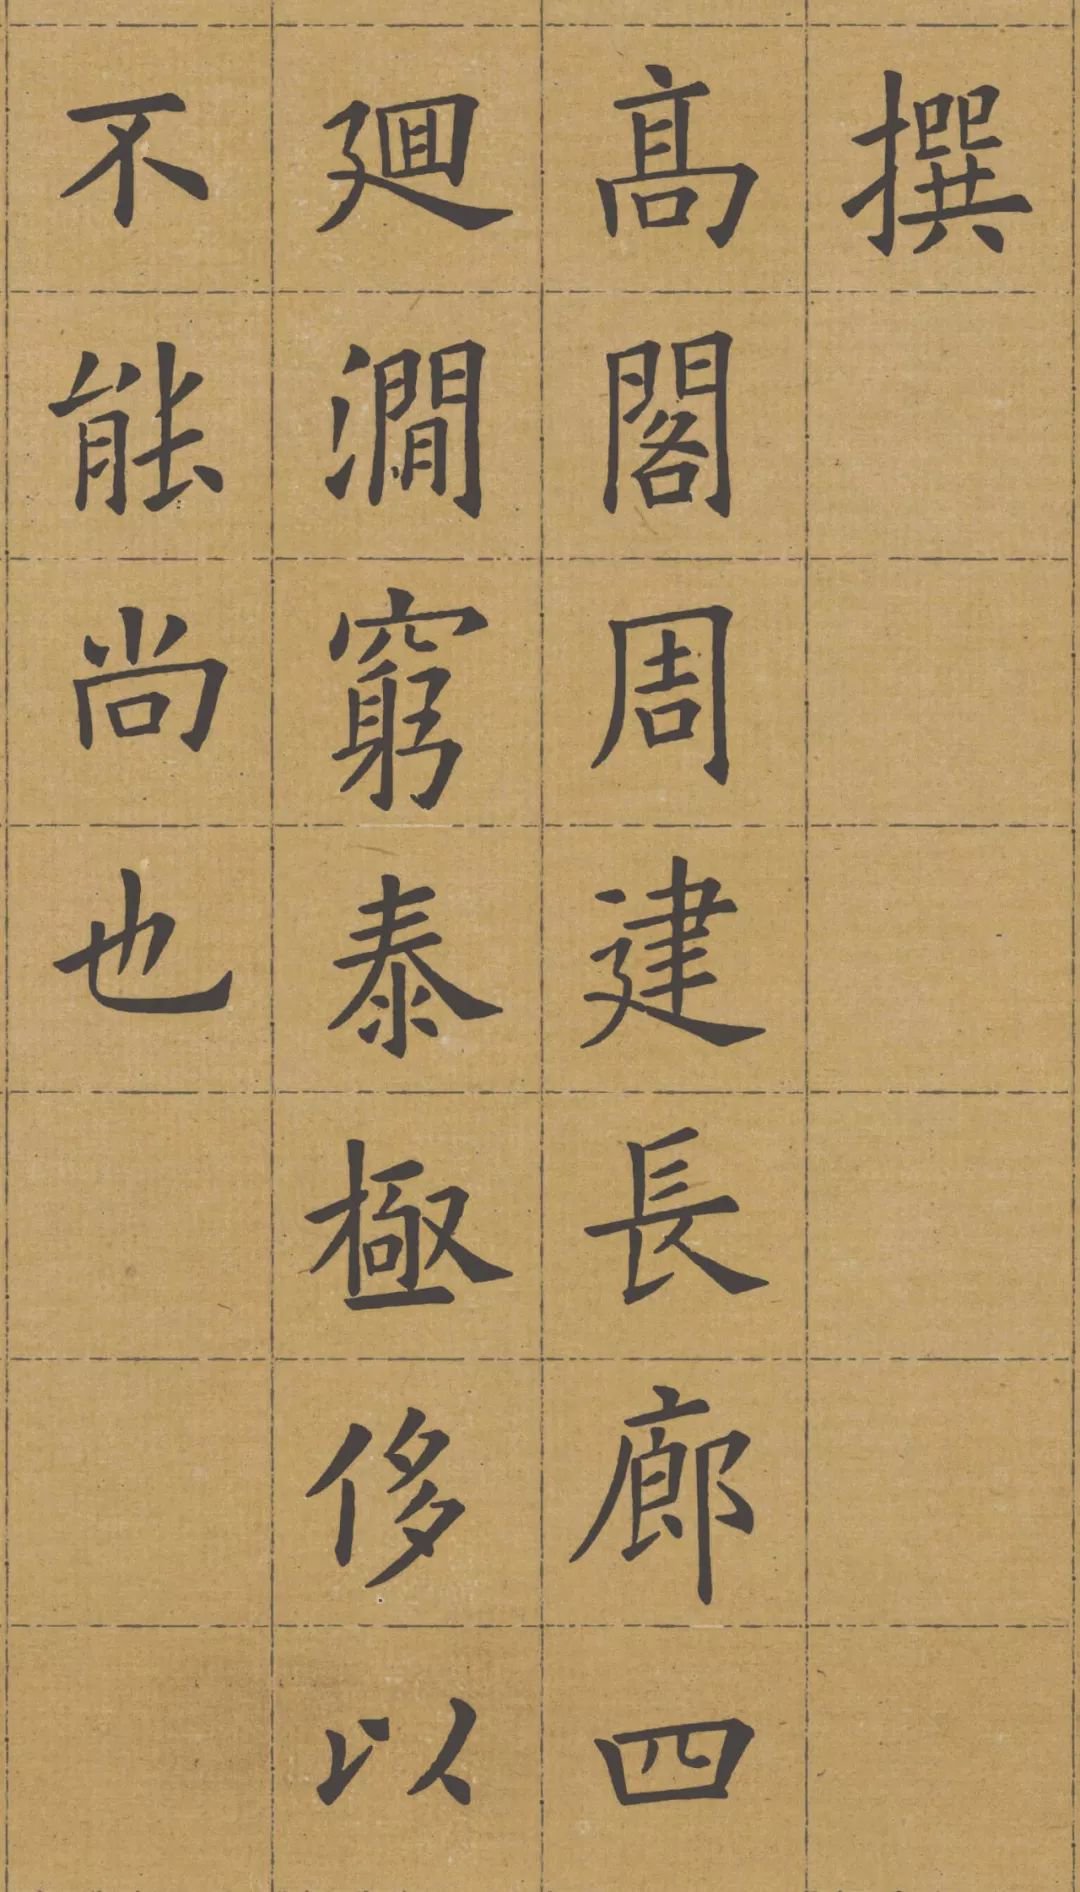 撰
髙閣周建長廊四
廻澗窮泰極侈以
不能尚也